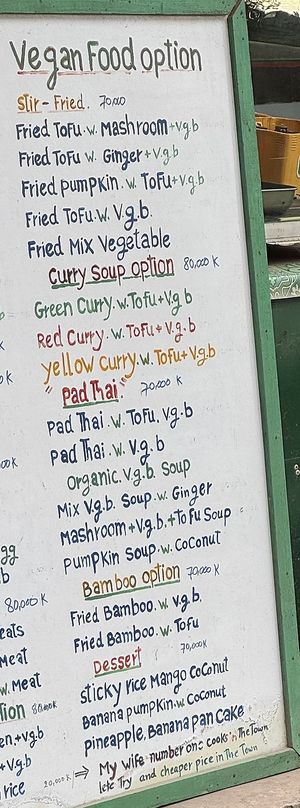 Vegan Food option
Stir-Fried. 70,000
Fried ToFu.w. Mashroom+V.g.b
Fried ToFu w Ginger+V.g.b
Fried pumpkin.w. ToFu+V.g.b
Fried ToFu.w. V.g.b.
Fried Mix Vegetable
Curry Soup option 80,000 K
Green Curry.w.ToFu+V.g.b
Red Curry.w.ToFu+V.g.b
yellow Curry.w.ToFu+V.g.b
"Pad Thai." 70,000 K
Pad Thai.w.ToFu, V.g.b
Pad Thai.w. V.g.b
Organic.V.g.b. Soup
Mix V.g.b. Soup.w Ginger
Mashroom+V.g.b.+ToFu Soup
Pumpkin Soup.w.Coconut
Bamboo option 70,000 K
Fried Bamboo.w V.g.b.
Fried Bamboo.w. ToFu
Dessert 70,000K
Sticky rice Mango Coconut
Banana pumpkin.w.Coconut
pineapple, Banana pan Cake.
20,000 K ⇒ My wife number one cooks in The Town
lets Try and cheaper pice in The Town
gg
b
80,000 K
eats
Meat
w. Meat
tion 80,000 K
en.+V.g.b
+V.g.b
rice